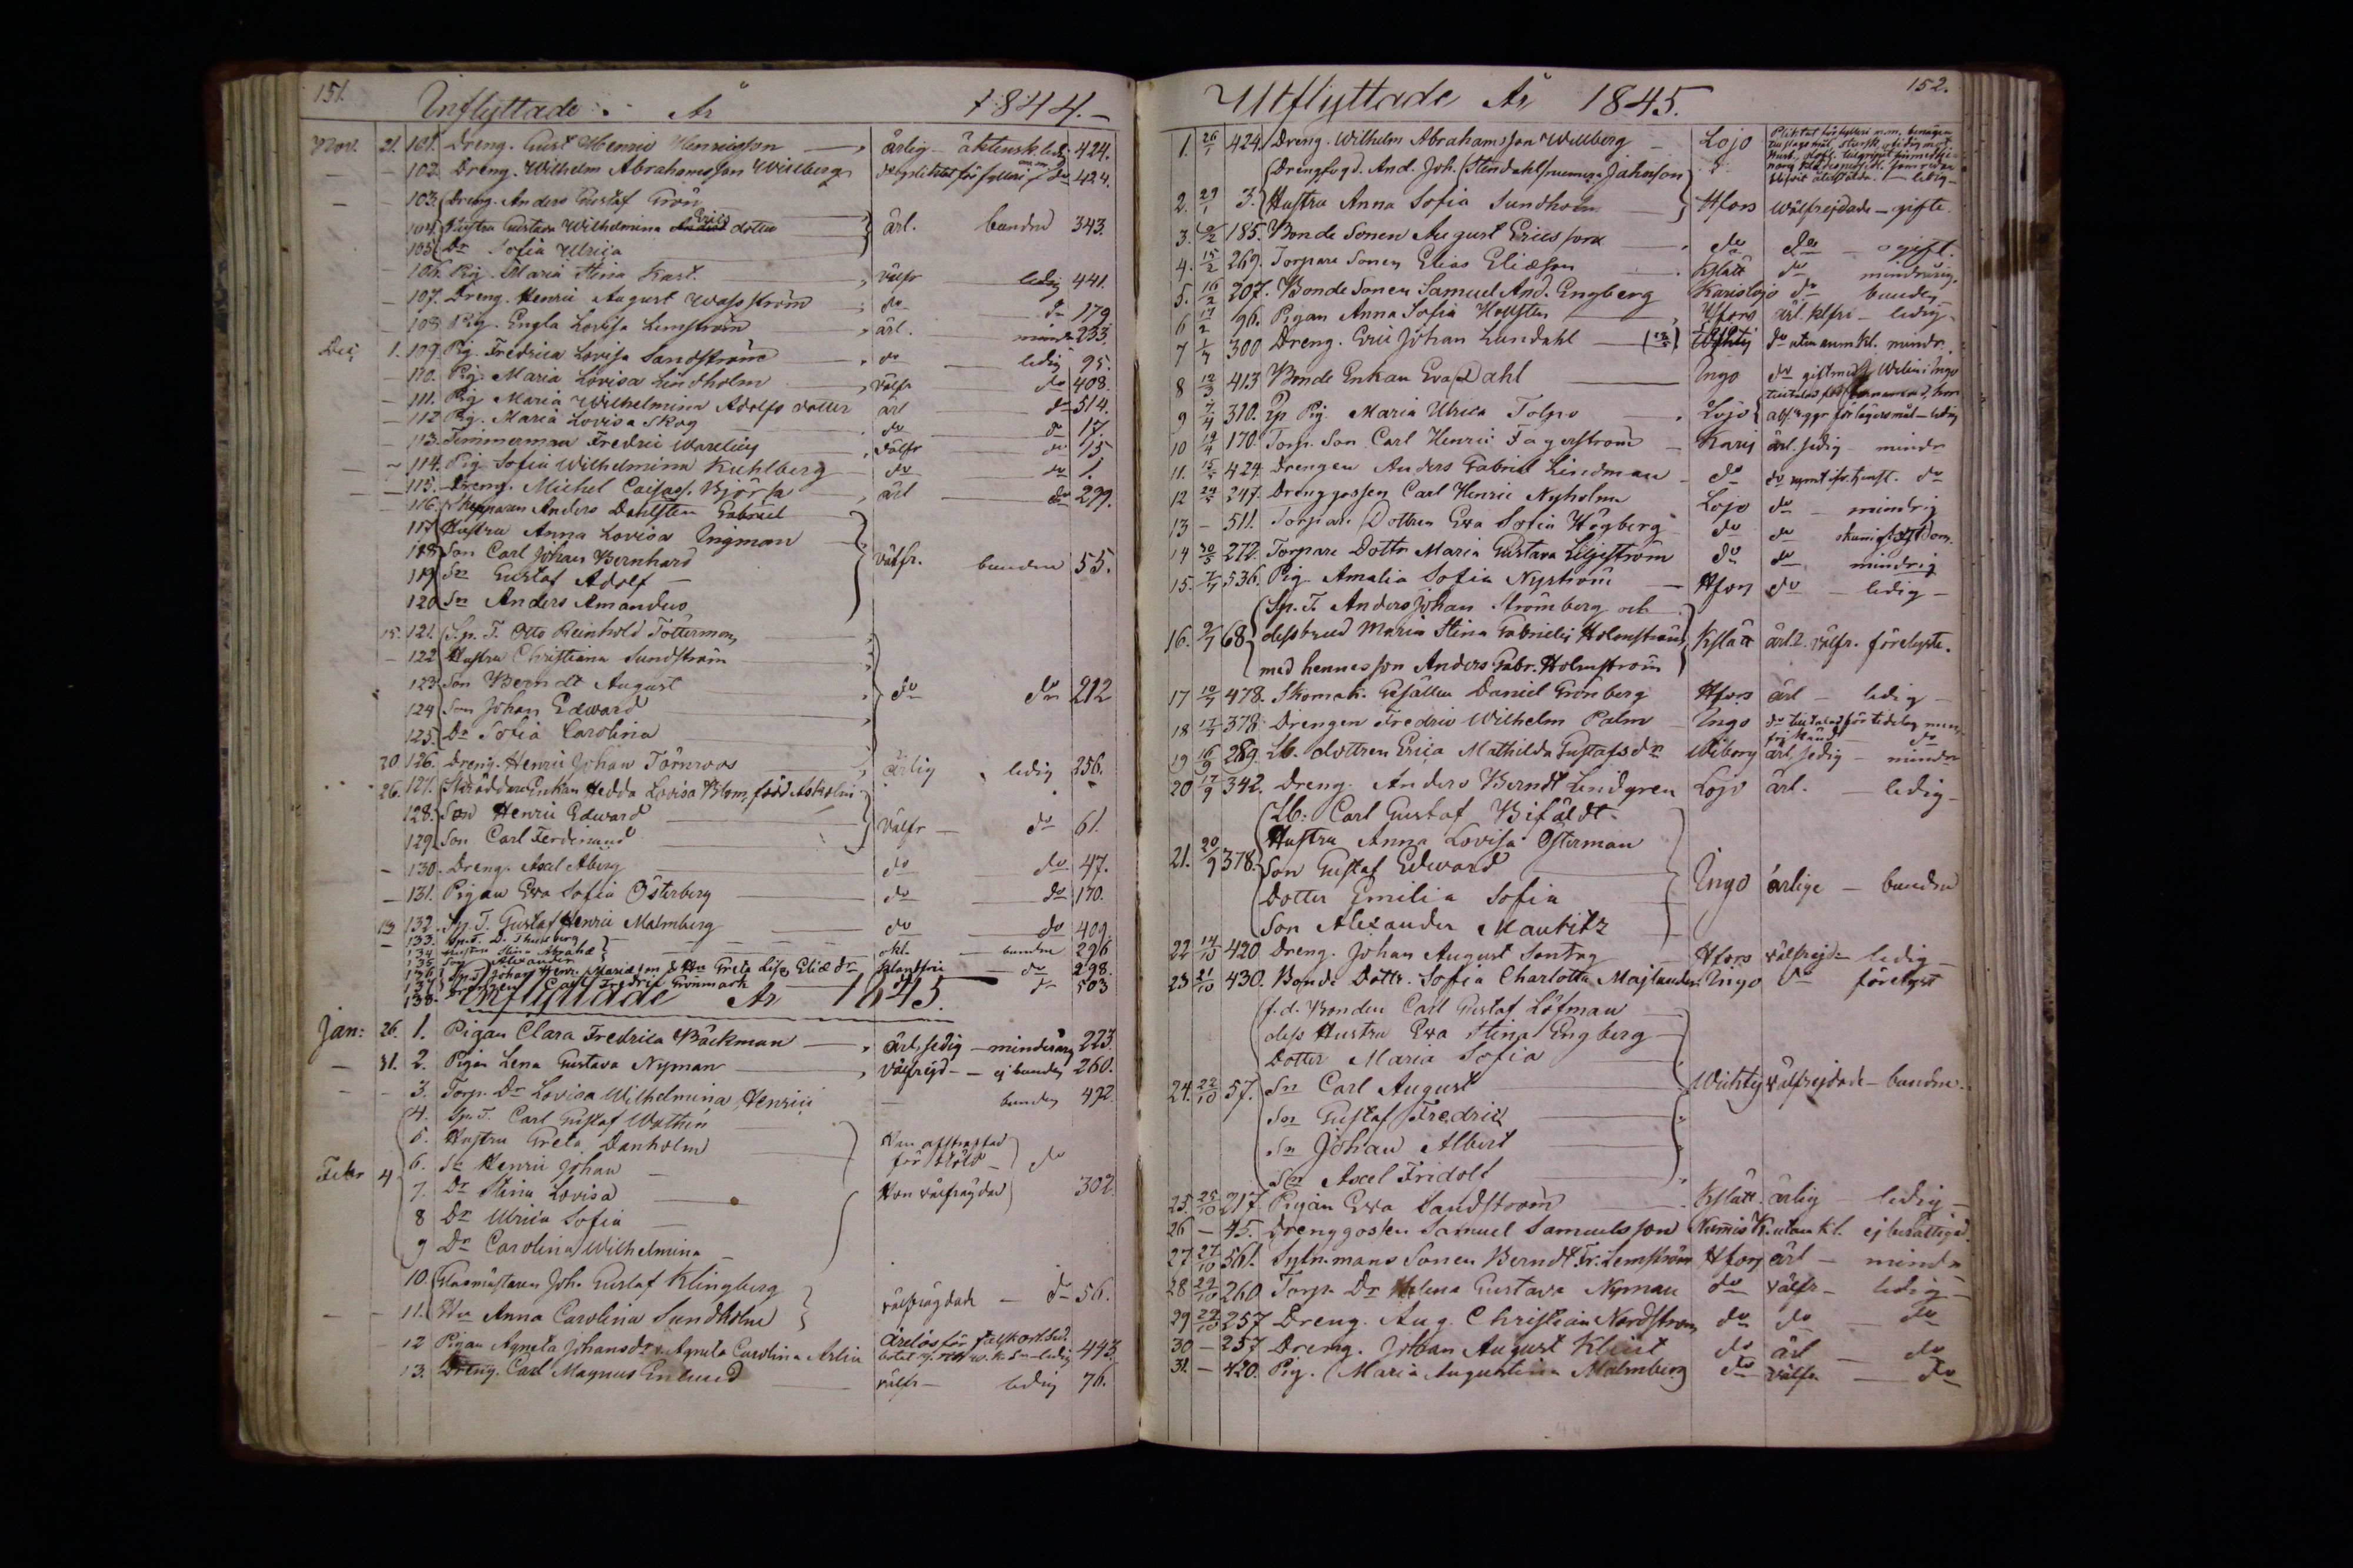 151.
Inflyttade År 1844.
Nov. 21. 101. Dreng. Gust Henric Henricsson ärlig äktensk. ledig 424.
102. Dreng. Wilhelm Abrahamsson Willberg do plichtat för fylleri do 424.
103. Dreng. Anders Gustaf Grön
104. Hustru Gustava Wilhelmina Erics dotter ärl. bunden 343.
105. Dr Sofia Ulrica
106. Pig. Maria Stina Kast. välfr ledig 441.
107. Dreng. Henric August Wasström do do 179
108 Pig. Engla Lovisa Lemström ärl. mindr 233.
Dec. 1. 109. Pig. Fredrica Lovisa Sandström do ledig 95.
110. Pig. Maria Lovisa Lindholm välfr do 408.
111. Pig Maria Wilhelmina Adolfs dotter ärl do 514.
112 Pig. Maria Lovisa Skog do do 17
113. Timmerman Fredric Warelius välfr do 15
114. Pig. Sofia Wilhelmina Kuhlberg do do 1.
115. Dreng. Michel Caisas. Björk ärl do 299.
116. Skepparen Anders Dahlsten Gabriel
117 Hustru Anna Lovisa Ingman
118 Son Carl Johan Bernhard välfr. bunden 55.
119 Sn Gustaf Adolf
120 Sn Anders Amandus
15. 121. Sp. T. Otto Reinhold Totterman
122 Hustru Christiana Sundström
123 Son Berndt August do do 212
124 Son Johan Edward
125. Dr Sofia Carolina
20 126. Dreng. Henric Johan Törnroos ärlig ledig 256.
26. 127. Skräddare Enkan Hedda Lovisa Blom, född Askolin
128. Son Henric Edward välfr do 61.
129 Son Carl Ferdinand
130. Dreng. Axel Åberg do do 47.
131. Pigan Eva Sofia Österberg do do 170.
13 132. Sp. T. Gustaf Henric Malmberg do do 409.
133. Sp. T. D. Thunberg
134 Hustru Stina Abrahd okl. bunden 296
135 Son Alexander
136 Sp. T. Johan Henr. Mariæson & Hu Greta Lisa Eliædr klandfri do 298.
137
138. Drengen Carl Fredric Grönmark do 503
Inflyttade År 1845.
Jan: 26. 1. Pigan Clara Fredrica Bäckman ärl. sedig minderårig 223.
31. 2. Pigan Lena Gustava Nyman välfrejd ej bunden 260.
3. Torp. Dr Lovisa Wilhelmina Henric bunden 492.
4. Sp. T. Carl Gustaf Wathén
5. Hustru Greta Danholm Han afstraffad
Febr 4 6. Sn Henric Johan för stöld do
7. Dr Stina Lovisa Hon välfrägdad 302.
8 Dr Ulrica Sofia
9 Dr Carolina Wilhelmina
10. Glasmästaren Joh. Gustaf Klingberg
11. Hu Anna Carolina Sundholm välfrägdade do 56.
12 Pigan Agneta Johansdr. Agneta Carolina Arlin Ärelös för ledig 443.
13. Dreng. Carl Magnus Enlund välfr ledig 76.
152.
Utflyttade År 1845.
1. 26/1 424. Dreng. Wilhelm Abrahamsson Willberg Lojo
Drengfogd. And. Joh. Stendahl Jahnson
2. 29/1 3. Hustru Anna Sofia Sundholm Hfors Wälfrejdade gifte.
3. 185. Bonde Sonen August Ericsson do do ogift.
4. 15/2 269. Torpare Sonen Elias Eliæson Kslätt do minderårig.
5. 16/2 207. Bonde Sonen Samuel And. Engberg Karislojo do bunden
6 17/2 96. Pigan Anna Sofia Hollsten Hfors ärl. klfri ledig
7 300 Dreng. Eric Johan Lundahl do utan anm kl. mindr.
8 12/3 413 Bonde Enkan Eva Dahl Ingo
9 310. Pig. Maria Ulrica Tolpo Lojo ledig
10 170. Torp. Son Carl Henric Fagerström Karis ärl. sedig mindr
11. 424. Drengen Anders Gabriel Lindman do do
12 247. Drenggossen Carl Henric Nyholm Lojo do mindrig
13 511. Torpare Dottren Eva Sofia Högberg do do
14 30/5 272. Torpare Dottr Maria Gustava Liljeström do do mindrig
15. 536. Pig. Amalia Sofia Nyström Hfors do ledig
Sp. T. Anders Johan Strömberg och
16. 68 dess brud Maria Stina Gabriels Holmström Kslätt ärl. & välfr. förelyste.
med hennes son Anders Gabr. Holmström
17 478. Skomak. Gesällen Daniel Grönberg Hfors ärl ledig
18 378. Drengen Fredric Wilhelm Palm Ingo do tilltalad för tidelag men frikänd do
19 16/9 289. Lb. dottren Erica Mathilda Gustafsdr Wiborg ärl. sedig mindr
20 17/9 342. Dreng. Anders Berndt Lindgren Lojo ärl. ledig
Lb. Carl Gustaf Bifäldt
Hustru Anna Lovisa Österman
21. 20/9 378. Son Gustaf Edward
Dotter Emilia Sofia Ingo ärlige bundne
Son Alexander Mauritz
22 14/10 420 Dreng. Johan August Sontag Hfors välfrejd ledig
23 21/10 430. Bonde Dottr. Sofia Charlotta Majlander Ingo do förelyst
f.d. Bonden Carl Gustaf Löfman
dess Hustru Eva Stina Engberg
Dotter Maria Sofia
24. 22/10 57. Sn Carl August Wichtis välfrejdade bundne.
Sn Gustaf Fredric
Sn Johan Albert
Sn Axel Fridolf
25. 25/10 217. Pigan Eva Sandström Kslätt ärlig ledig
26 45. Drenggossen Samuel Samuelsson Nummis K. utan kl. ej besättigad.
27. 27/10 561. Sytn.mans Sonen Berndt Fr. Lemström Hfors ärl mindr
28 29/10 260 Torp. Dr Helena Gustava Nyman do välfr ledig
29 29/10 257 Dreng. Aug. Christian Nordström do do do
30 257 Dreng. Johan August Kleist do ärl do
31. 420. Pig. Maria Augustina Malmberg do välfr do